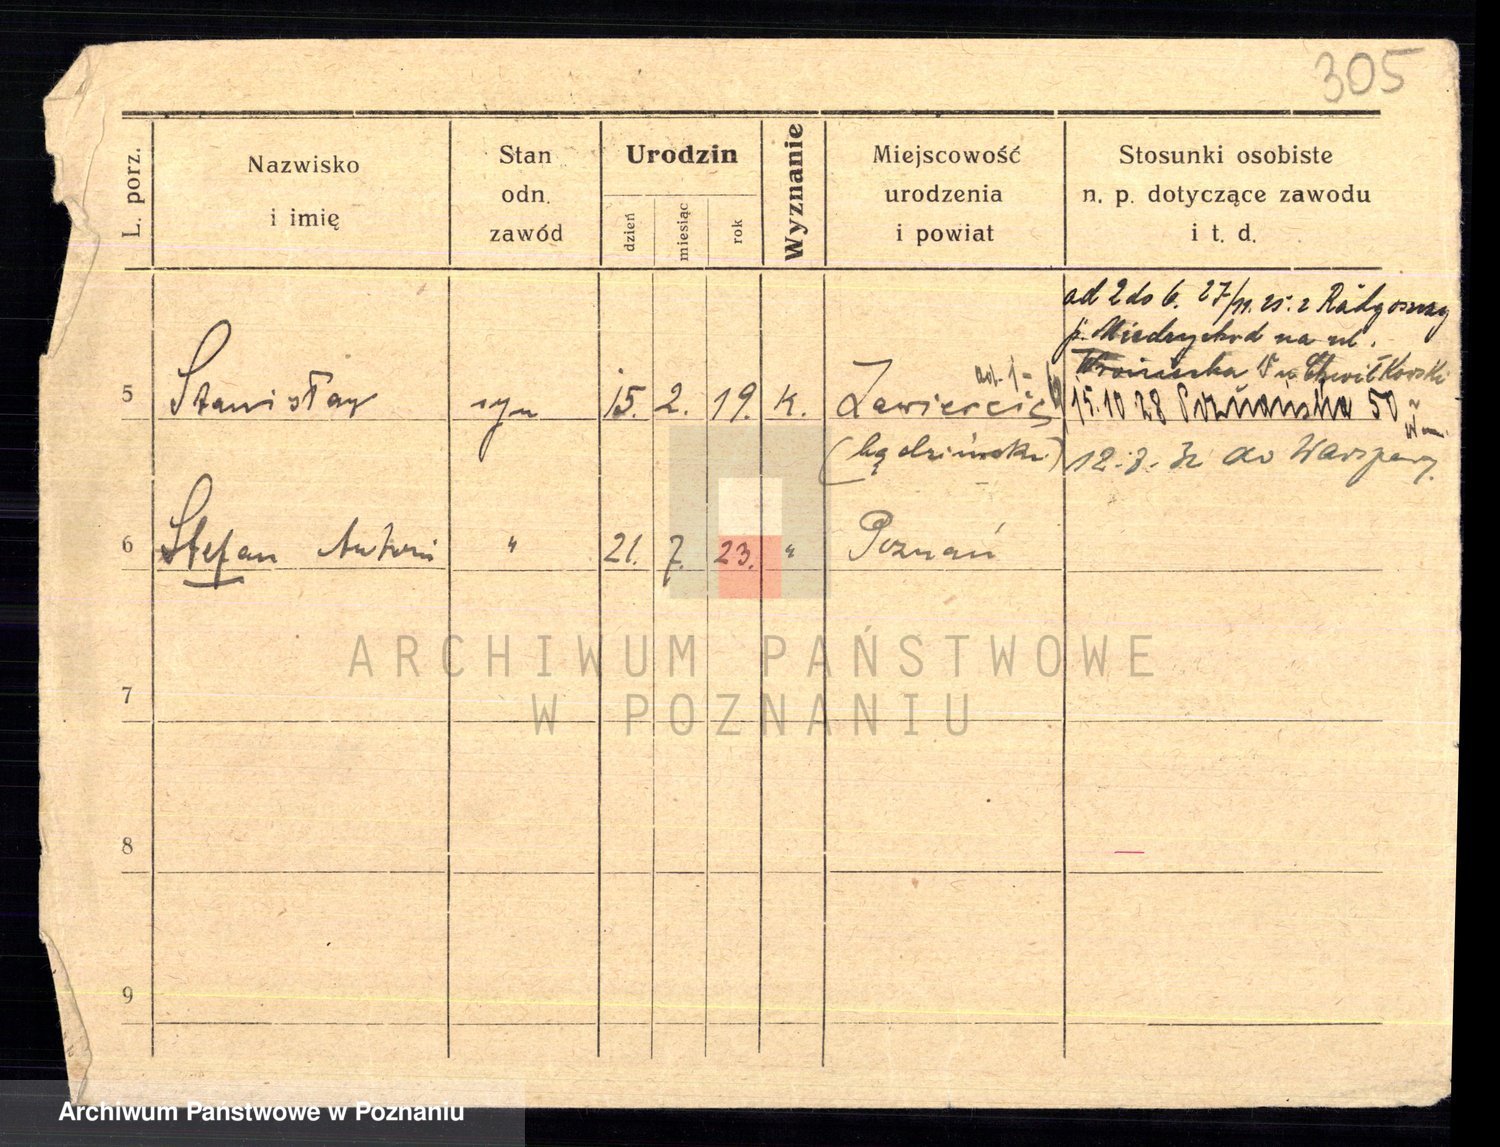 305
L. porz.
Nazwisko
i imię
Stan
odn.
zawód
Urodzin
dzień
miesiąc
rok
Wyznanie
Miejscowość
urodzenia
i powiat
Stosunki osobiste
n. p. dotyczące zawodu
i t. d.
ad 2 do 6. 27/11. 25. z Radgoszczy
p. Miedzychod na ul.
u Chwiłkowski
5 Stanisław syn 15. 2. 19. k. Zawiercie 15.10 28 Poznańska 50
(będziński) 12. 3. 32 do Warszawy
6 Stefan Antoni " 21. 7. 23. " Poznań
7
8
9
ARCHIWUM PAŃSTWOWE
W POZNANIU
Archiwum Państwowe w Poznaniu